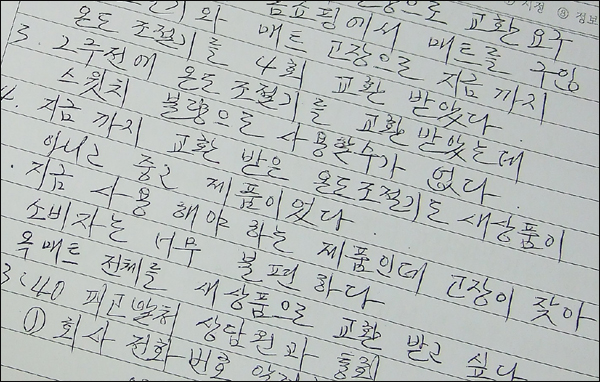 시청 ⑧ 정보
교환 요구
홈쇼핑에서 매트를 구입
와 매트 고장으로 지금 까지
온도 조절기를 4회 교환 받았다
3. 2주전에 온도 조절기를 교환 받았는데
스윗치 불량으로 사용할수가 없다
4. 지금 까지 교환 받은 온도조절기도 새상품이
아니고 중고 제품이었다
. 지금 사용 해야 하는 제품인데 고장이 잦아
소비자는 너무 불편 하다
옥매트 전체를 새상품으로 교환 받고 싶다
3:40 상담원과 통화
① 회사 전화번호